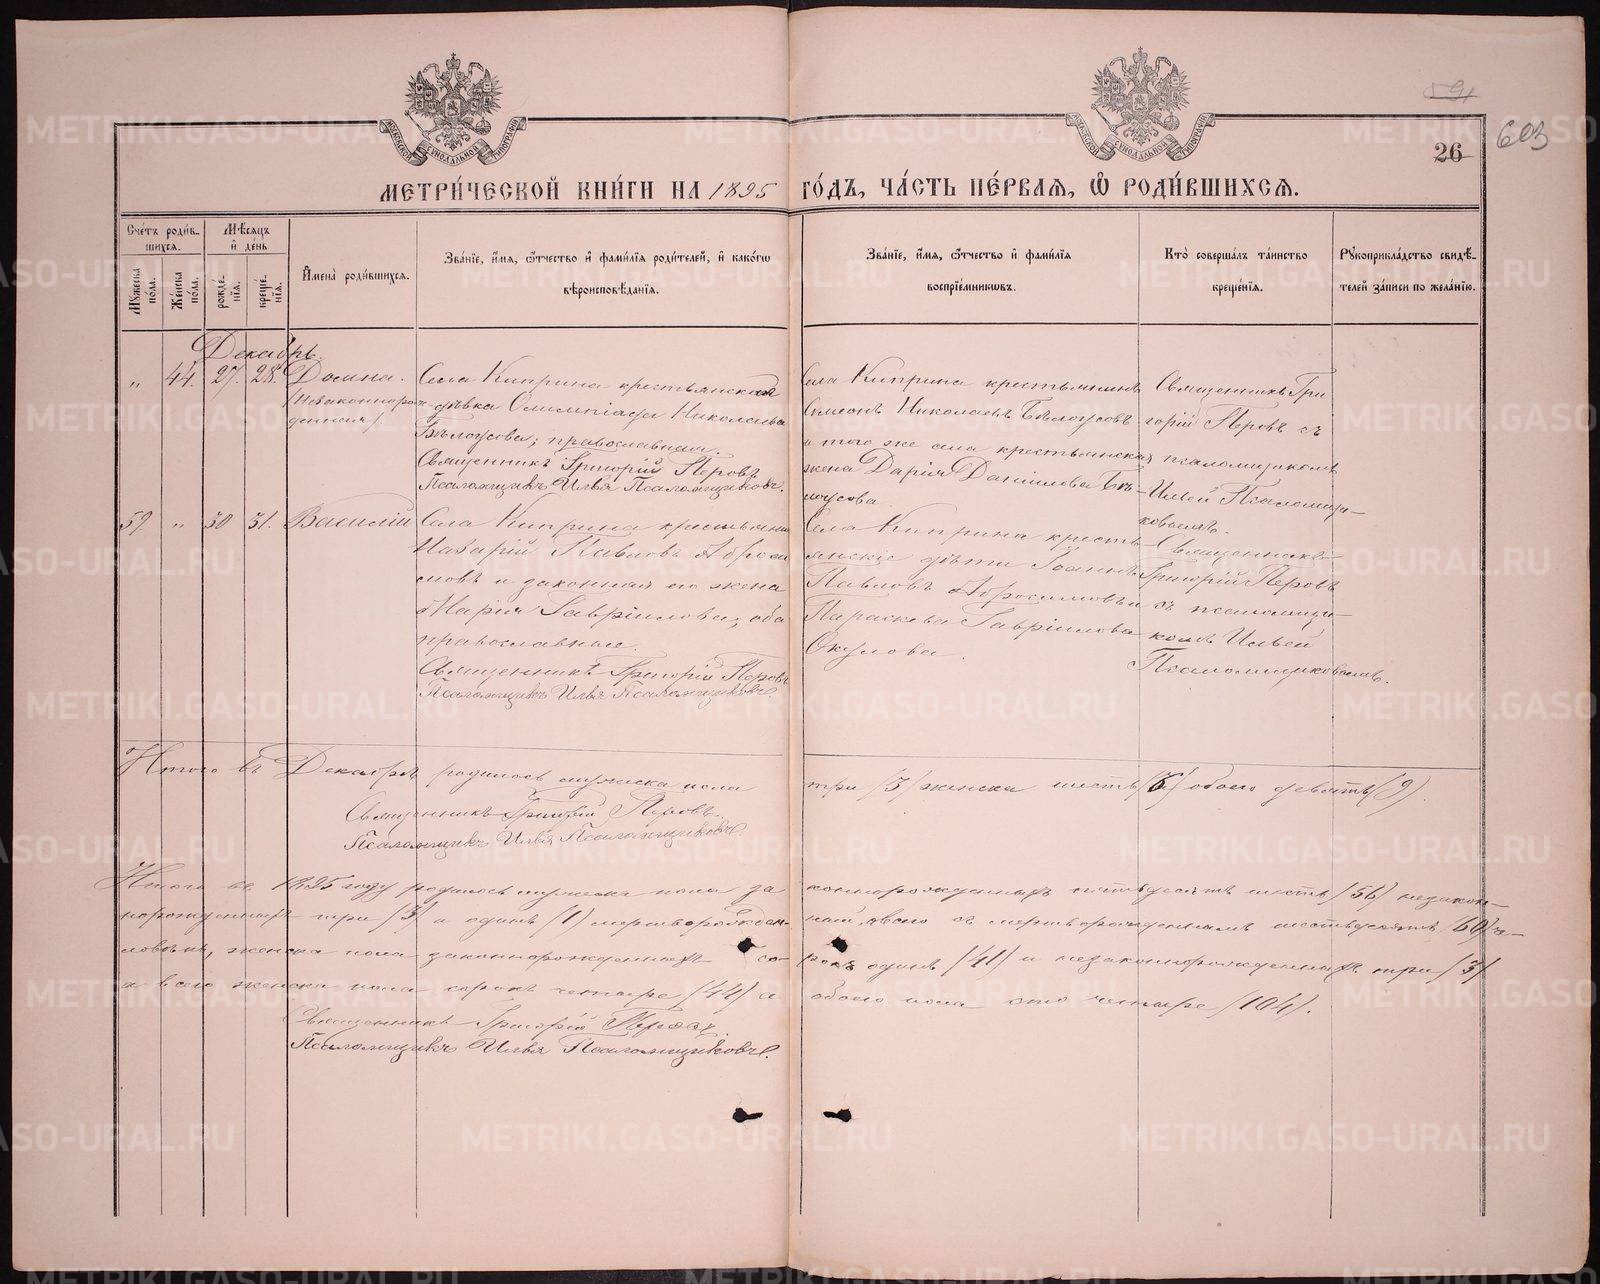 МОСКОВСКОЙ СѴНОДАЛЬНОЙ ТИПОГРАФІИ
МОСКОВСКОЙ СѴНОДАЛЬНОЙ ТИПОГРАФІИ
591
603
26
МЕТРИ́ЧЕСКОЙ КНИ́ГИ НА 1895 ГО́ДЪ, ЧА́СТЬ ПЕ́РВАЯ, Ѽ РОДИ́ВШИХСѦ.
Сче́тъ роди́в-
шихсѧ.
Мѣ́сѧцъ
и҆ де́нь
Му́жеска
по́ла.
Же́нска
по́ла.
рожде́-
нїѧ.
креще́-
нїѧ.
И҆мена̀ роди́вшихсѧ.
Зва́нїе, и҆́мѧ, ѻ҆́тчество и҆ фами́лїѧ роди́телей, и҆ како́гѡ
вѣроисповѣ́данїѧ.
Зва́нїе, и҆́мѧ, ѻ҆́тчество и҆ фами́лїѧ
воспрїе́мникѡвъ.
Кто̀ соверша́лъ та́инство
креще́нїѧ.
Рꙋкоприкла́дство свидѣ́-
телей за́писи по жела́нїю.
Декабрь.
„ 44. 27. 28. Домна.
(Незаконнорож-
денная)
Села Киприна крестьянская
дѣвка Олимпіада Николаева
Бѣлоусова; православная.
Священникъ Григорій Перовъ
Псаломщикъ Илья Псаломщиковъ.
Села Киприна крестьянинъ
Симеонъ Николаевъ Бѣлоусовъ
и того же села крестьянская
жена Дарія Даніилова Бѣ-
лоусова.
Священникъ Гри
горій Перовъ съ
псаломщикомъ
Ильей Псаломщи-
ковымъ.
59 „ 30 31. Василій
Села Киприна крестьянинъ
Назарій Павловъ Аброси
мовъ и законная его жена
Марія Гавріилова, оба
православные.
Священникъ Григорій Перовъ
Псаломщикъ Илья Псаломщиковъ
Села Киприна кресть-
янскіе дѣти Іоаннъ
Павловъ Абросимовъ и
Параскева Гавріилова
Окулова.
Священникъ
Григорій Перовъ
съ псаломщи-
комъ Ильей
Псаломщиковымъ.
Итого въ Декабрѣ родилось мужеска пола три (3) женска шесть (6) обоего девять (9).
Священникъ Григорій Перовъ.
Псаломщикъ Илья Псаломщиковъ.
Итого въ 1895 году родилось мужеска пола за коннорожденныхъ пятьдесятъ шесть (56) незакон-
норожденныхъ три (3) и одинъ (1) мертворожден- ный, всего съ мертворожденнымъ шестьдесятъ (60) че-
ловѣкъ, женска пола законнорожденныхъ со- рокъ одинъ (41) и незаконнорожденныхъ три (3)
а всего женска пола сорокъ четыре (44) а обоего пола сто четыре (104).
Священникъ Григорій Перовъ.
Псаломщикъ Илья Псаломщиковъ.
METRIKI.GASO-URAL.RU